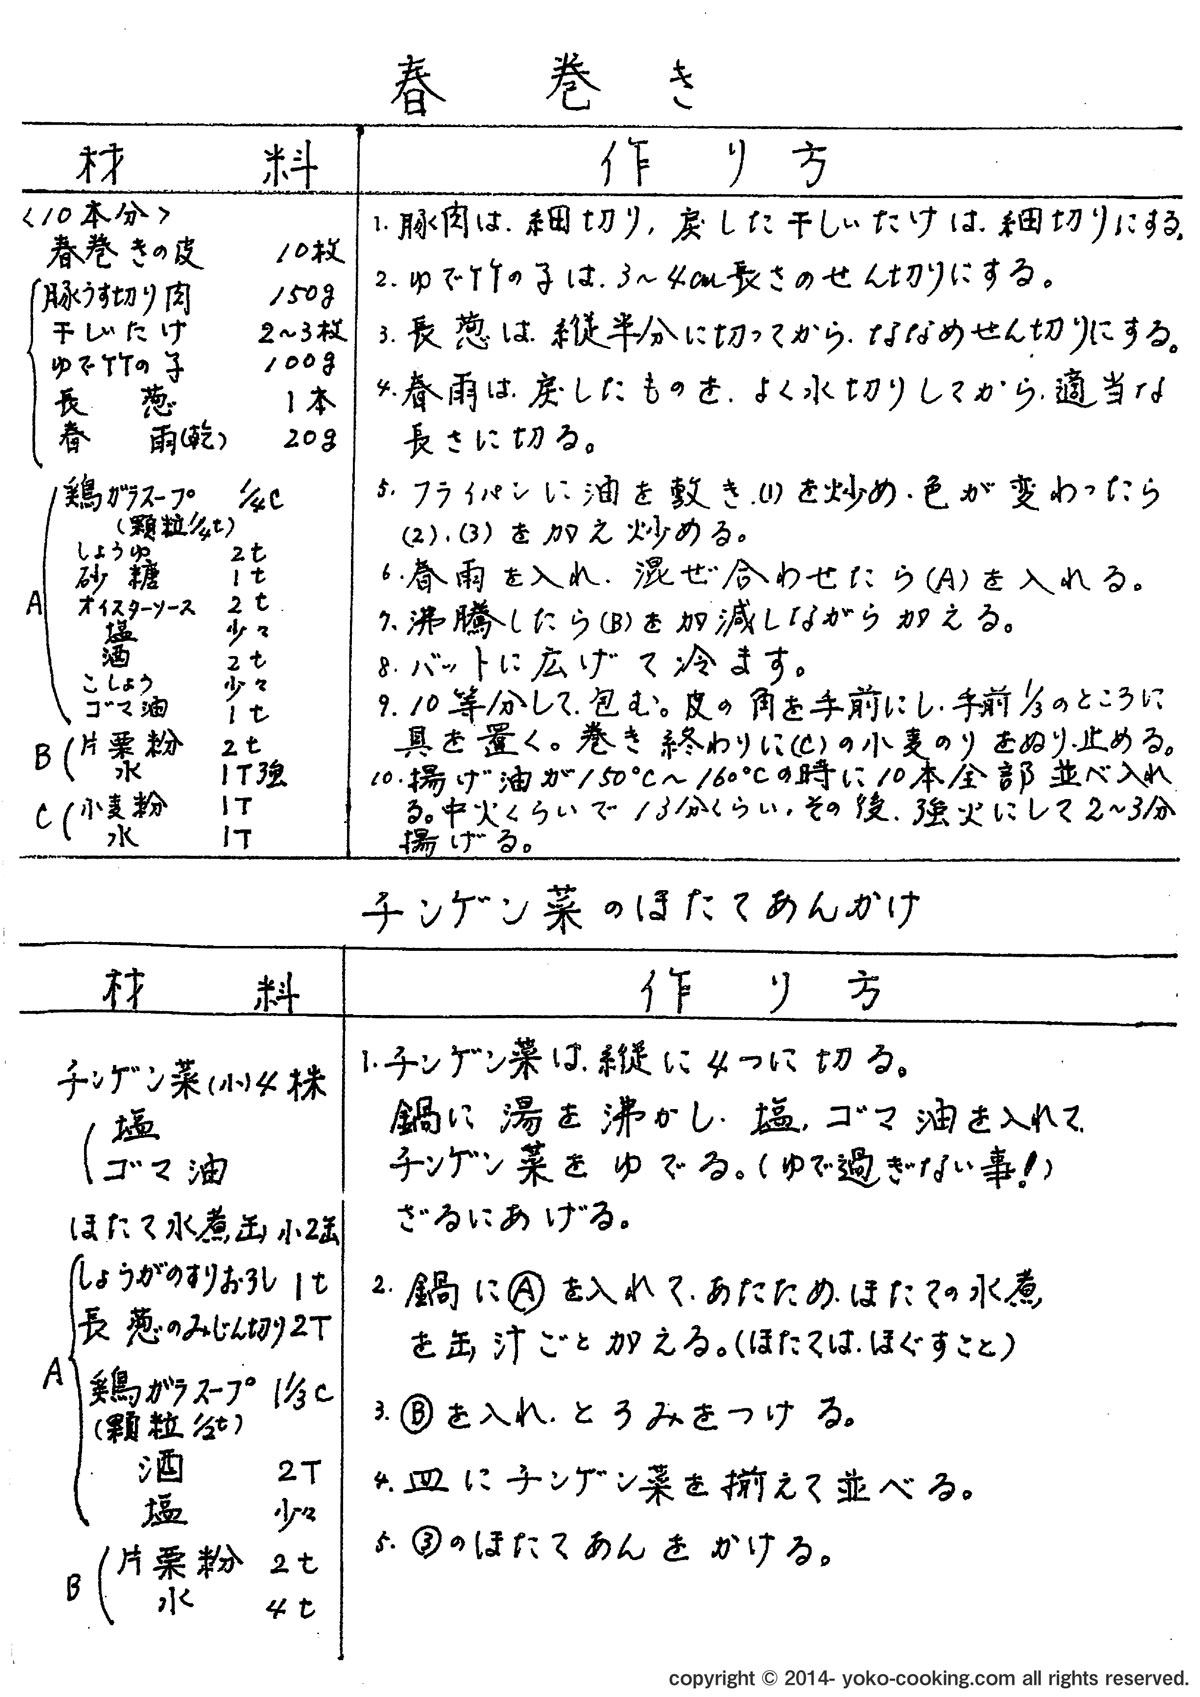 春巻き
材料
作り方
〈10本分〉
春巻きの皮 10枚
豚うす切り肉 150g
干しいたけ 2~3枚
ゆで竹の子 100g
長葱 1本
春雨(乾) 20g
A
鶏ガラスープ 1/4C
(顆粒1/4t)
しょうゆ 2t
砂糖 1t
オイスターソース 2t
塩 少々
酒 2t
こしょう 少々
ゴマ油 1t
B
片栗粉 2t
水 1T強
C
小麦粉 1T
水 1T
1. 豚肉は、細切り、戻した干しいたけは、細切りにする。
2. ゆで竹の子は、3~4cm長さのせん切りにする。
3. 長葱は、縦半分に切ってから、ななめせん切りにする。
4. 春雨は、戻したものを、よく水切りしてから、適当な
長さに切る。
5. フライパンに油を敷き、(1)を炒め、色が変わったら
(2)、(3)を加え炒める。
6. 春雨を入れ、混ぜ合わせたら(A)を入れる。
7. 沸騰したら(B)を加減しながら加える。
8. バットに広げて冷ます。
9. 10等分して、包む。皮の角を手前にし、手前1/3のところに
具を置く。巻き終わりに(C)の小麦のりをぬり、止める。
10. 揚げ油が150℃~160℃の時に10本全部並べ入れ
る。中火くらいで13分くらい、その後、強火にして2~3分
揚げる。
チンゲン菜のほたてあんかけ
材料
作り方
チンゲン菜(小)4株
塩
ゴマ油
ほたて水煮缶 小2缶
A
しょうがのすりおろし 1t
長葱のみじん切り 2T
鶏ガラスープ 1 1/3C
(顆粒1/2t)
酒 2T
塩 少々
B
片栗粉 2t
水 4t
1. チンゲン菜は、縦に4つに切る。
鍋に湯を沸かし、塩、ゴマ油を入れて、
チンゲン菜をゆでる。(ゆで過ぎない事!)
ざるにあげる。
2. 鍋にⒶを入れて、あたため、ほたての水煮
を缶汁ごと加える。(ほたては、ほぐすこと)
3. Ⓑを入れ、とろみをつける。
4. 皿にチンゲン菜を揃えて並べる。
5. ③のほたてあんをかける。
copyright © 2014- yoko-cooking.com all rights reserved.